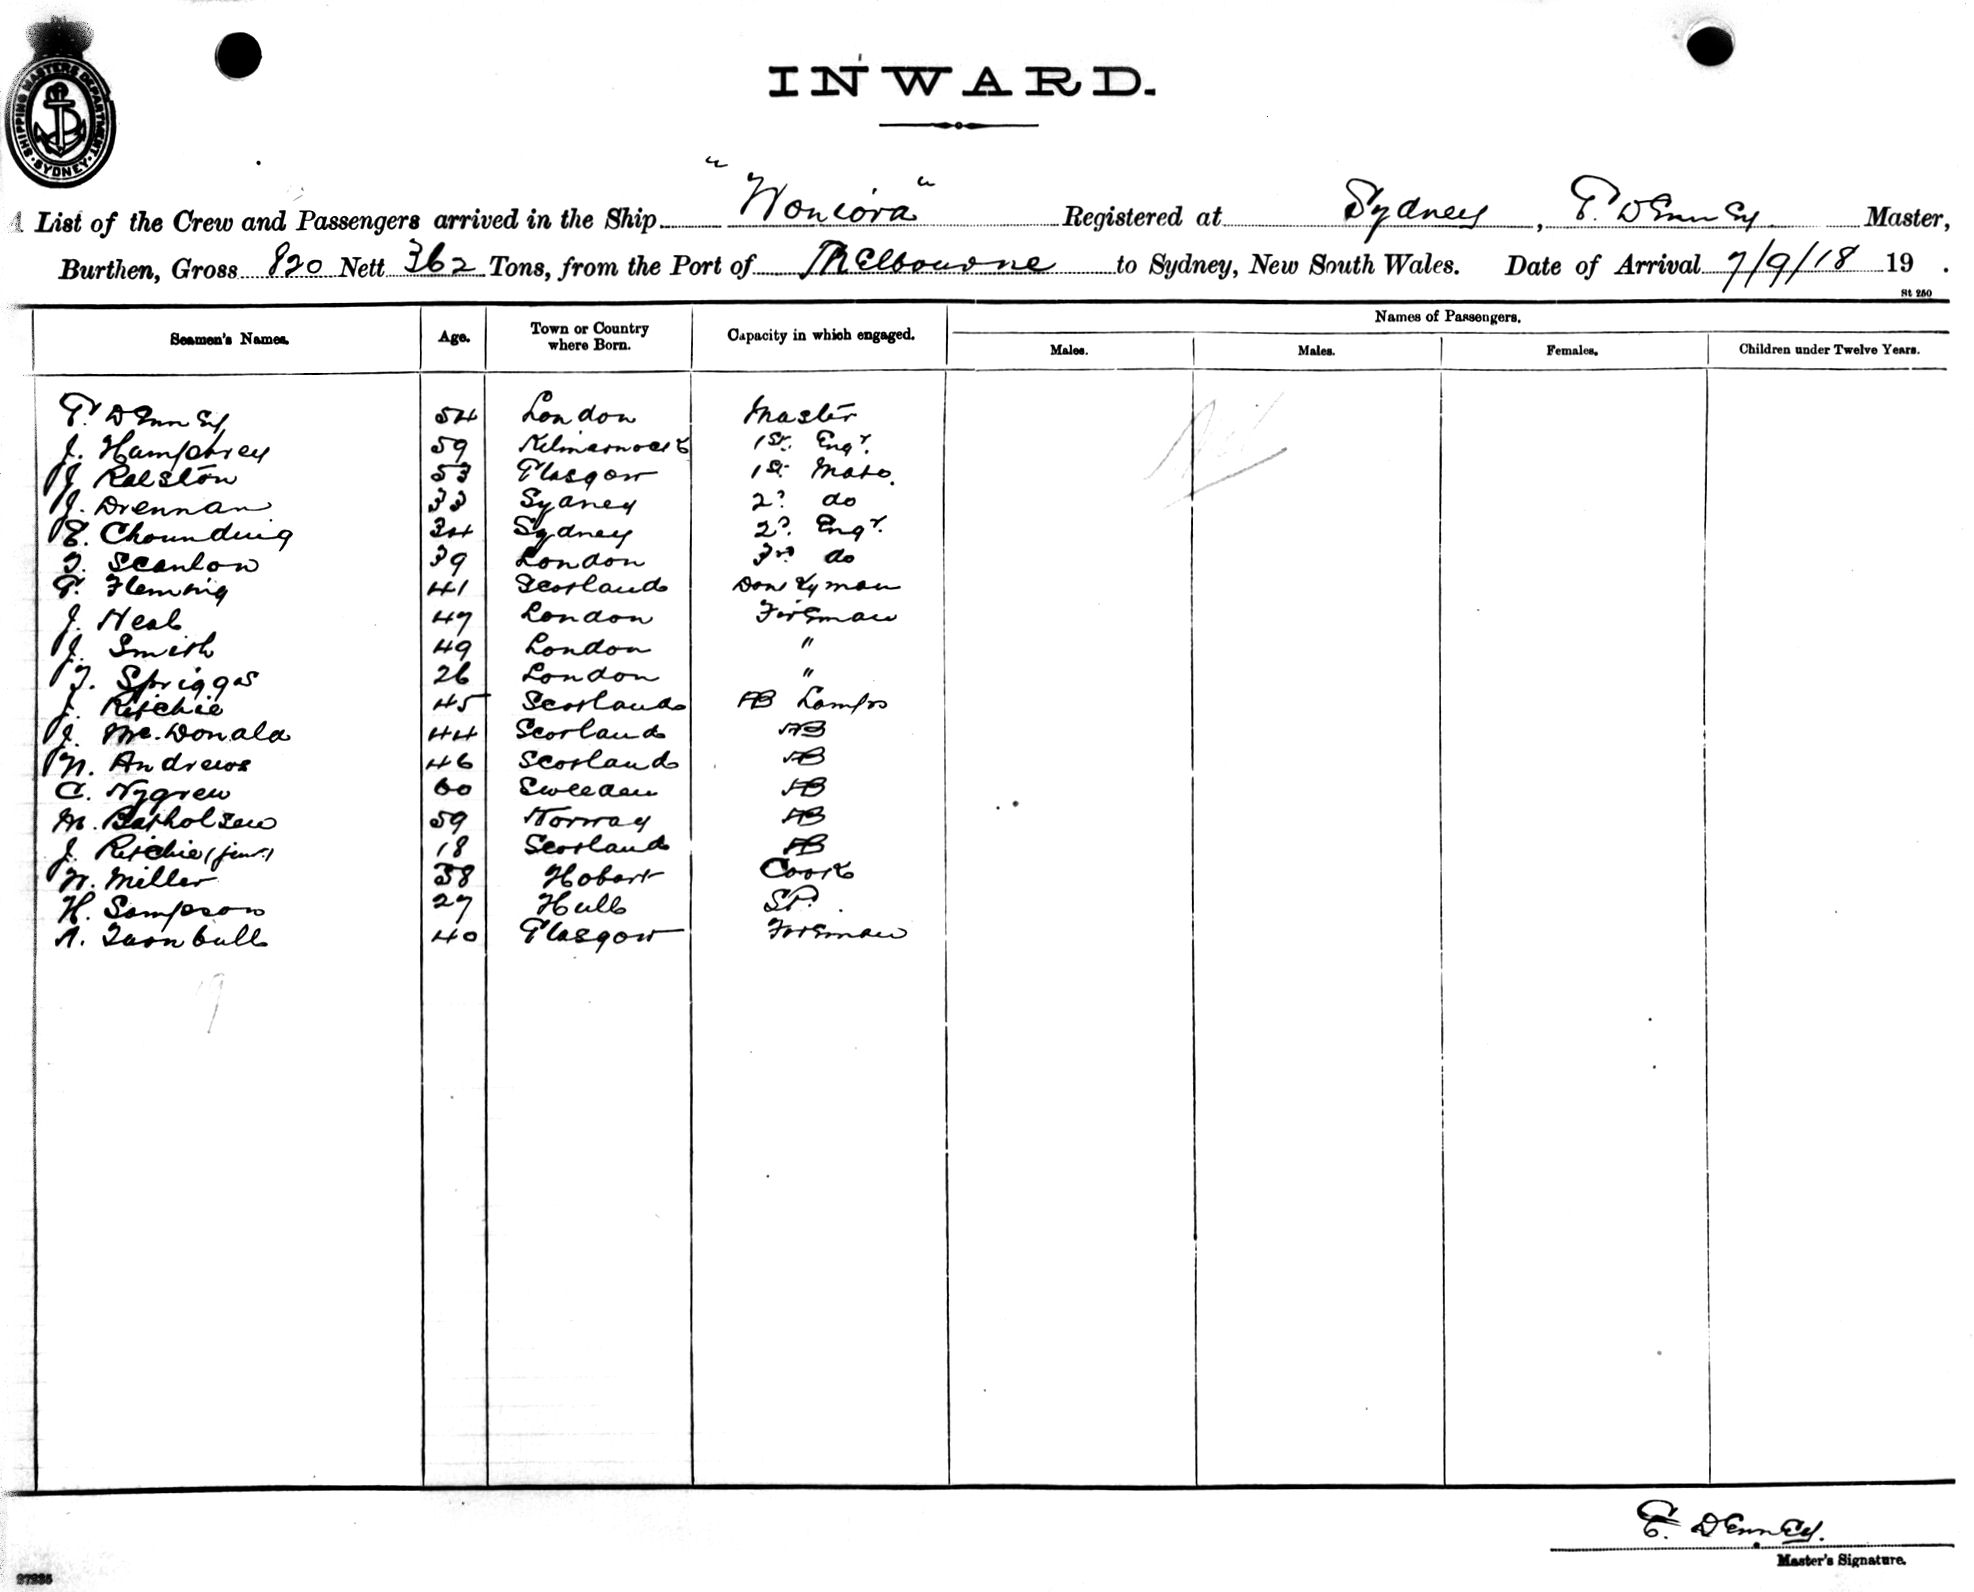 SHIPPING MASTERS DEPARTMENT · SYDNEY ·
INWARD.
A List of the Crew and Passengers arrived in the Ship "Woniora" Registered at Sydney, T. Denney Master,
Burthen, Gross 820 Nett 362 Tons, from the Port of Melbourne to Sydney, New South Wales. Date of Arrival 7/9/18 19 .
St 250
Seamen's Names. Age. Town or Country where Born. Capacity in which engaged. Names of Passengers.
Males. Males. Females. Children under Twelve Years.
T. Denney 54 London Master
J. Hamphrey 59 Kilmarnock 1st. Engr. Nil
J. Ralston 53 Glasgow 1st Mate.
J. Drennan 33 Sydney 2d do
E. Chounding 34 Sydney 2d. Engr.
T. Scanlon 39 London 3rd do
T. Fleming 41 Scotland Donkyman
J. Neal 47 London Fireman
J. Smith 49 London "
T. Spriggs 26 London "
J. Ritchie 45 Scotland AB Lamps
J. Mc.Donald 44 Scotland AB
N. Andrews 46 Scotland AB
C. Nygren 60 Sweeden AB
M. Batholsen 59 Norway AB
J. Ritchie (junr.) 18 Scotland AB
W. Miller 38 Hobart Cook
H. Sampson 27 Hull St.
A. Turnbull 40 Glasgow Fireman
19
T. Denney.
Master's Signature.
27235